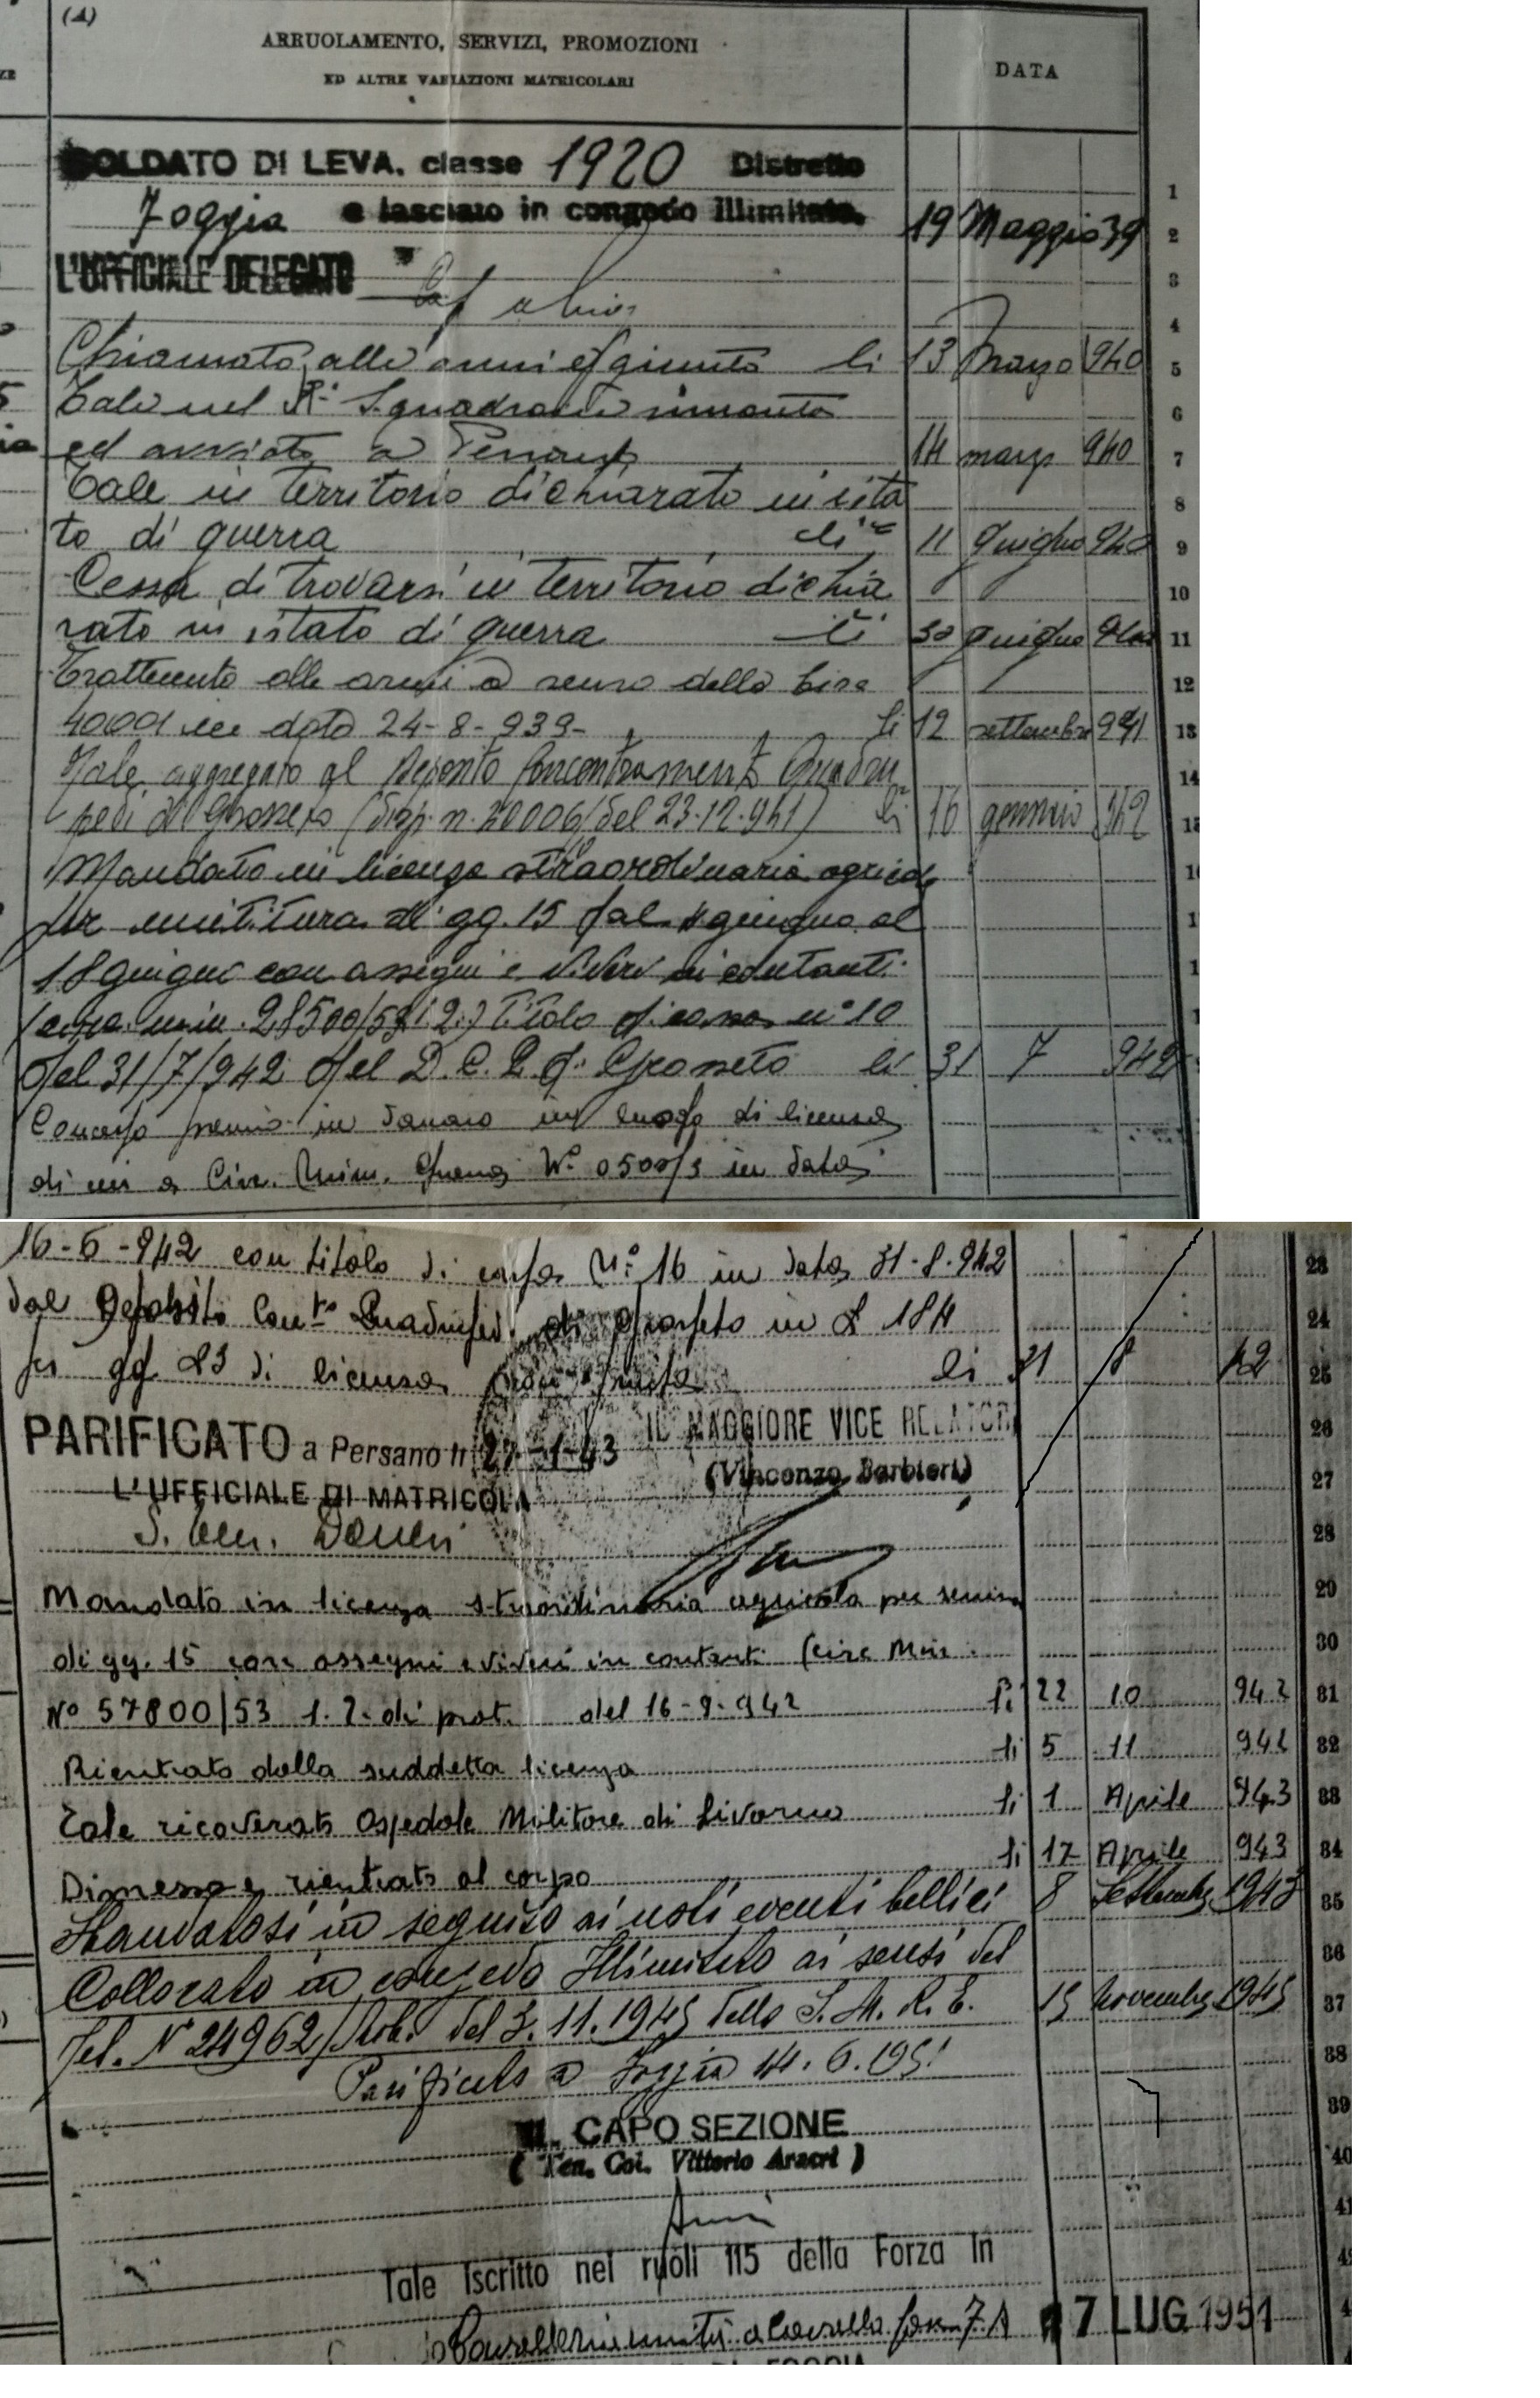 (A)
ARRUOLAMENTO, SERVIZI, PROMOZIONI
ED ALTRE VARIAZIONI MATRICOLARI
DATA
SOLDATO DI LEVA, classe 1920 Distretto
Foggia e lasciato in congedo illimitato. 19 Maggio 39
L'UFFICIALE DELEGATO
Chiamato alle armi e giunto li 13 Marzo 940
Tale nel R° Squadrone rimonta
ed avviato a Persano 14 marzo 940
Tale in territorio dichiarato in ista
to di guerra li 11 giugno 940
Cessa di trovarsi in territorio dichia
rato in istato di guerra li 30 giugno 940
Trattenuto alle armi a senso della Circ
40001 in data 24-8-939- li 12 settembre 941
Tale aggregato al Deposito Concentramento Quadru
pedi di Grosseto (disp. n. 20006/ del 23.12.941) li 16 gennaio 942
Mandato in licenza straordinaria agricola
per mietitura di gg. 15 dal 4 giugno al
18 giugno con assegni e viveri in contanti
(circ. min. 28500/53 1 2.) Titolo di cassa n° 10
del 31/7/942 del D. C. Q. di Grosseto li 31 7 942
Concesso premio in danaro in luogo di licenza
di cui a Circ. Min. Guerra N° 0500/3 in data
16-6-942 con titolo di cassa N° 16 in data 31-8-942
dal Deposito Conc.to Quadrupedi di Grosseto in £ 184
per gg 23 di licenza li 31 8 42
PARIFICATO a Persano li 27-1-43 IL MAGGIORE VICE RELATORE
L'UFFICIALE DI MATRICOLA (Vincenzo Barbieri)
Mandato in licenza straordinaria agricola per semina
di gg. 15 con assegni e viveri in contanti (circ Min.
N° 57800/53 1. 2. di prot. del 16-9-942 li 22 10 942
Rientrato dalla suddetta licenza li 5 11 942
Tale ricoverato Ospedale Militare di Livorno li 1 Aprile 943
Dimesso e rientrato al corpo li 17 Aprile 943
Sbandatosi in seguito ai noti eventi bellici 8 Settembre 1943
Collocato in congedo Illimitato ai sensi del
Tel. N° 24962/Mob. del 3.11.1945 dello S. M. R. E. 15 Novembre 1945
Parificato a Foggia 14.6.1951
IL CAPO SEZIONE
( Ten. Col. Vittorio Aracri )
Tale Iscritto nei ruoli 115 della Forza In
17 LUG 1951
1
2
3
4
5
6
7
8
9
10
11
12
13
14
23
24
25
26
27
28
29
30
31
32
33
34
35
36
37
38
39
40